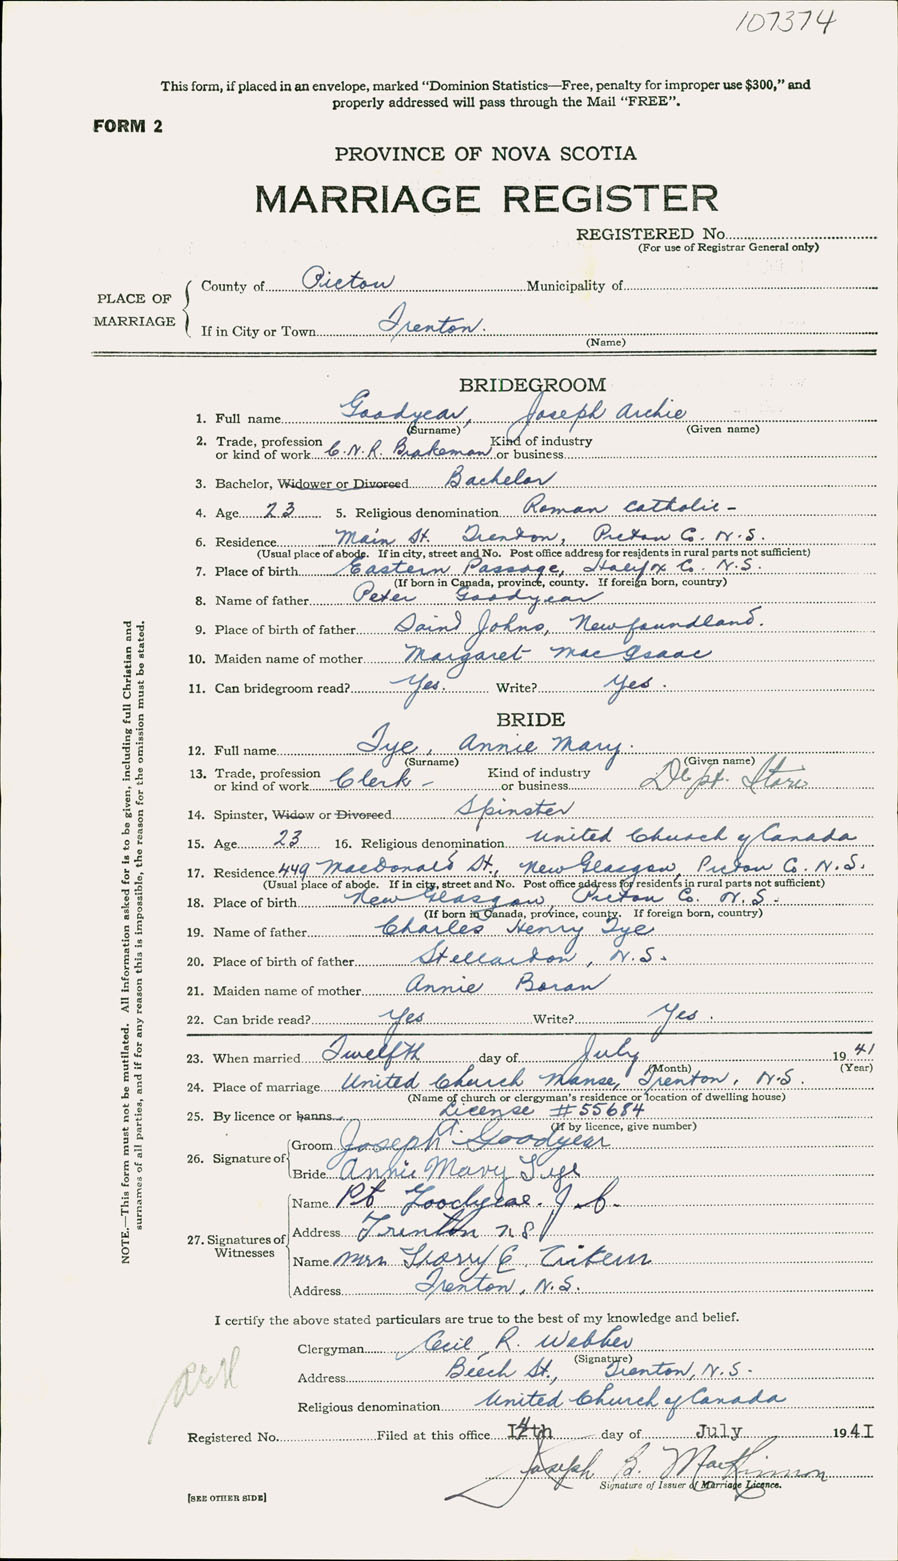 107374
This form, if placed in an envelope, marked "Dominion Statistics—Free, penalty for improper use $300," and
properly addressed will pass through the Mail "FREE".
FORM 2
PROVINCE OF NOVA SCOTIA
MARRIAGE REGISTER
REGISTERED No.
(For use of Registrar General only)
PLACE OF MARRIAGE
County of Pictou Municipality of
If in City or Town Trenton.
(Name)
BRIDEGROOM
1. Full name Goodyear, Joseph Archie
(Surname) (Given name)
2. Trade, profession or kind of work C.N.R. Brakeman Kind of industry or business
3. Bachelor, Widower or Divorced Bachelor
4. Age 23 5. Religious denomination Roman Catholic -
6. Residence Main St. Trenton, Pictou Co. N.S.
(Usual place of abode. If in city, street and No. Post office address for residents in rural parts not sufficient)
7. Place of birth Eastern Passage, Halifx Co. N.S.
(If born in Canada, province, county. If foreign born, country)
8. Name of father Peter Goodyear
9. Place of birth of father Saint Johns, Newfoundland.
10. Maiden name of mother Margaret MacIsaac
11. Can bridegroom read? Yes. Write? Yes.
BRIDE
12. Full name Tye, Annie Mary.
(Surname) (Given name)
13. Trade, profession or kind of work Clerk - Kind of industry or business Dept. Store
14. Spinster, Widow or Divorced Spinster
15. Age 23 16. Religious denomination United Church of Canada
17. Residence 449 MacDonald St., New Glasgow, Pictou Co. N.S.
(Usual place of abode. If in city, street and No. Post office address for residents in rural parts not sufficient)
18. Place of birth New Glasgow, Pictou Co. N.S.
(If born in Canada, province, county. If foreign born, country)
19. Name of father Charles Henry Tye
20. Place of birth of father Stellarton, N.S.
21. Maiden name of mother Annie Boran
22. Can bride read? Yes Write? Yes.
23. When married Twelfth day of July 1941
(Month) (Year)
24. Place of marriage United Church Manse, Trenton, N.S.
(Name of church or clergyman's residence or location of dwelling house)
25. By licence or banns License #55684
(If by licence, give number)
26. Signature of
Groom Joseph A. Goodyear
Bride Annie Mary Tye
27. Signatures of Witnesses
Name Pt Goodyear. J.
Address Trenton NS
Name Mrs Harry E.
Address Trenton, N.S.
I certify the above stated particulars are true to the best of my knowledge and belief.
Clergyman Cecil R. Webber
(Signature)
Address Beech St., Trenton, N.S.
Religious denomination United Church of Canada
Registered No. Filed at this office 14th day of July 1941
Joseph B. MacKinnon
Signature of Issuer of Marriage Licence.
[SEE OTHER SIDE]
NOTE.—This form must not be mutilated. All information asked for is to be given, including full Christian and
surnames of all parties, and if for any reason this is impossible, the reason for the omission must be stated.